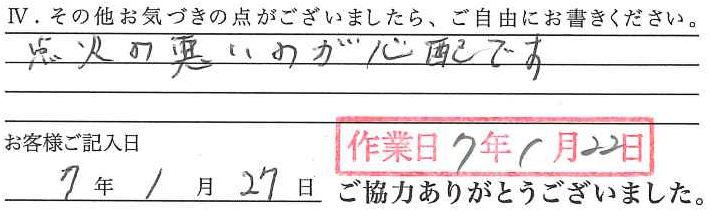 Ⅳ．その他お気づきの点がございましたら、ご自由にお書きください。
点火の悪いのが心配です
お客様ご記入日
作業日 7年1月22日
7年1月27日
ご協力ありがとうございました。